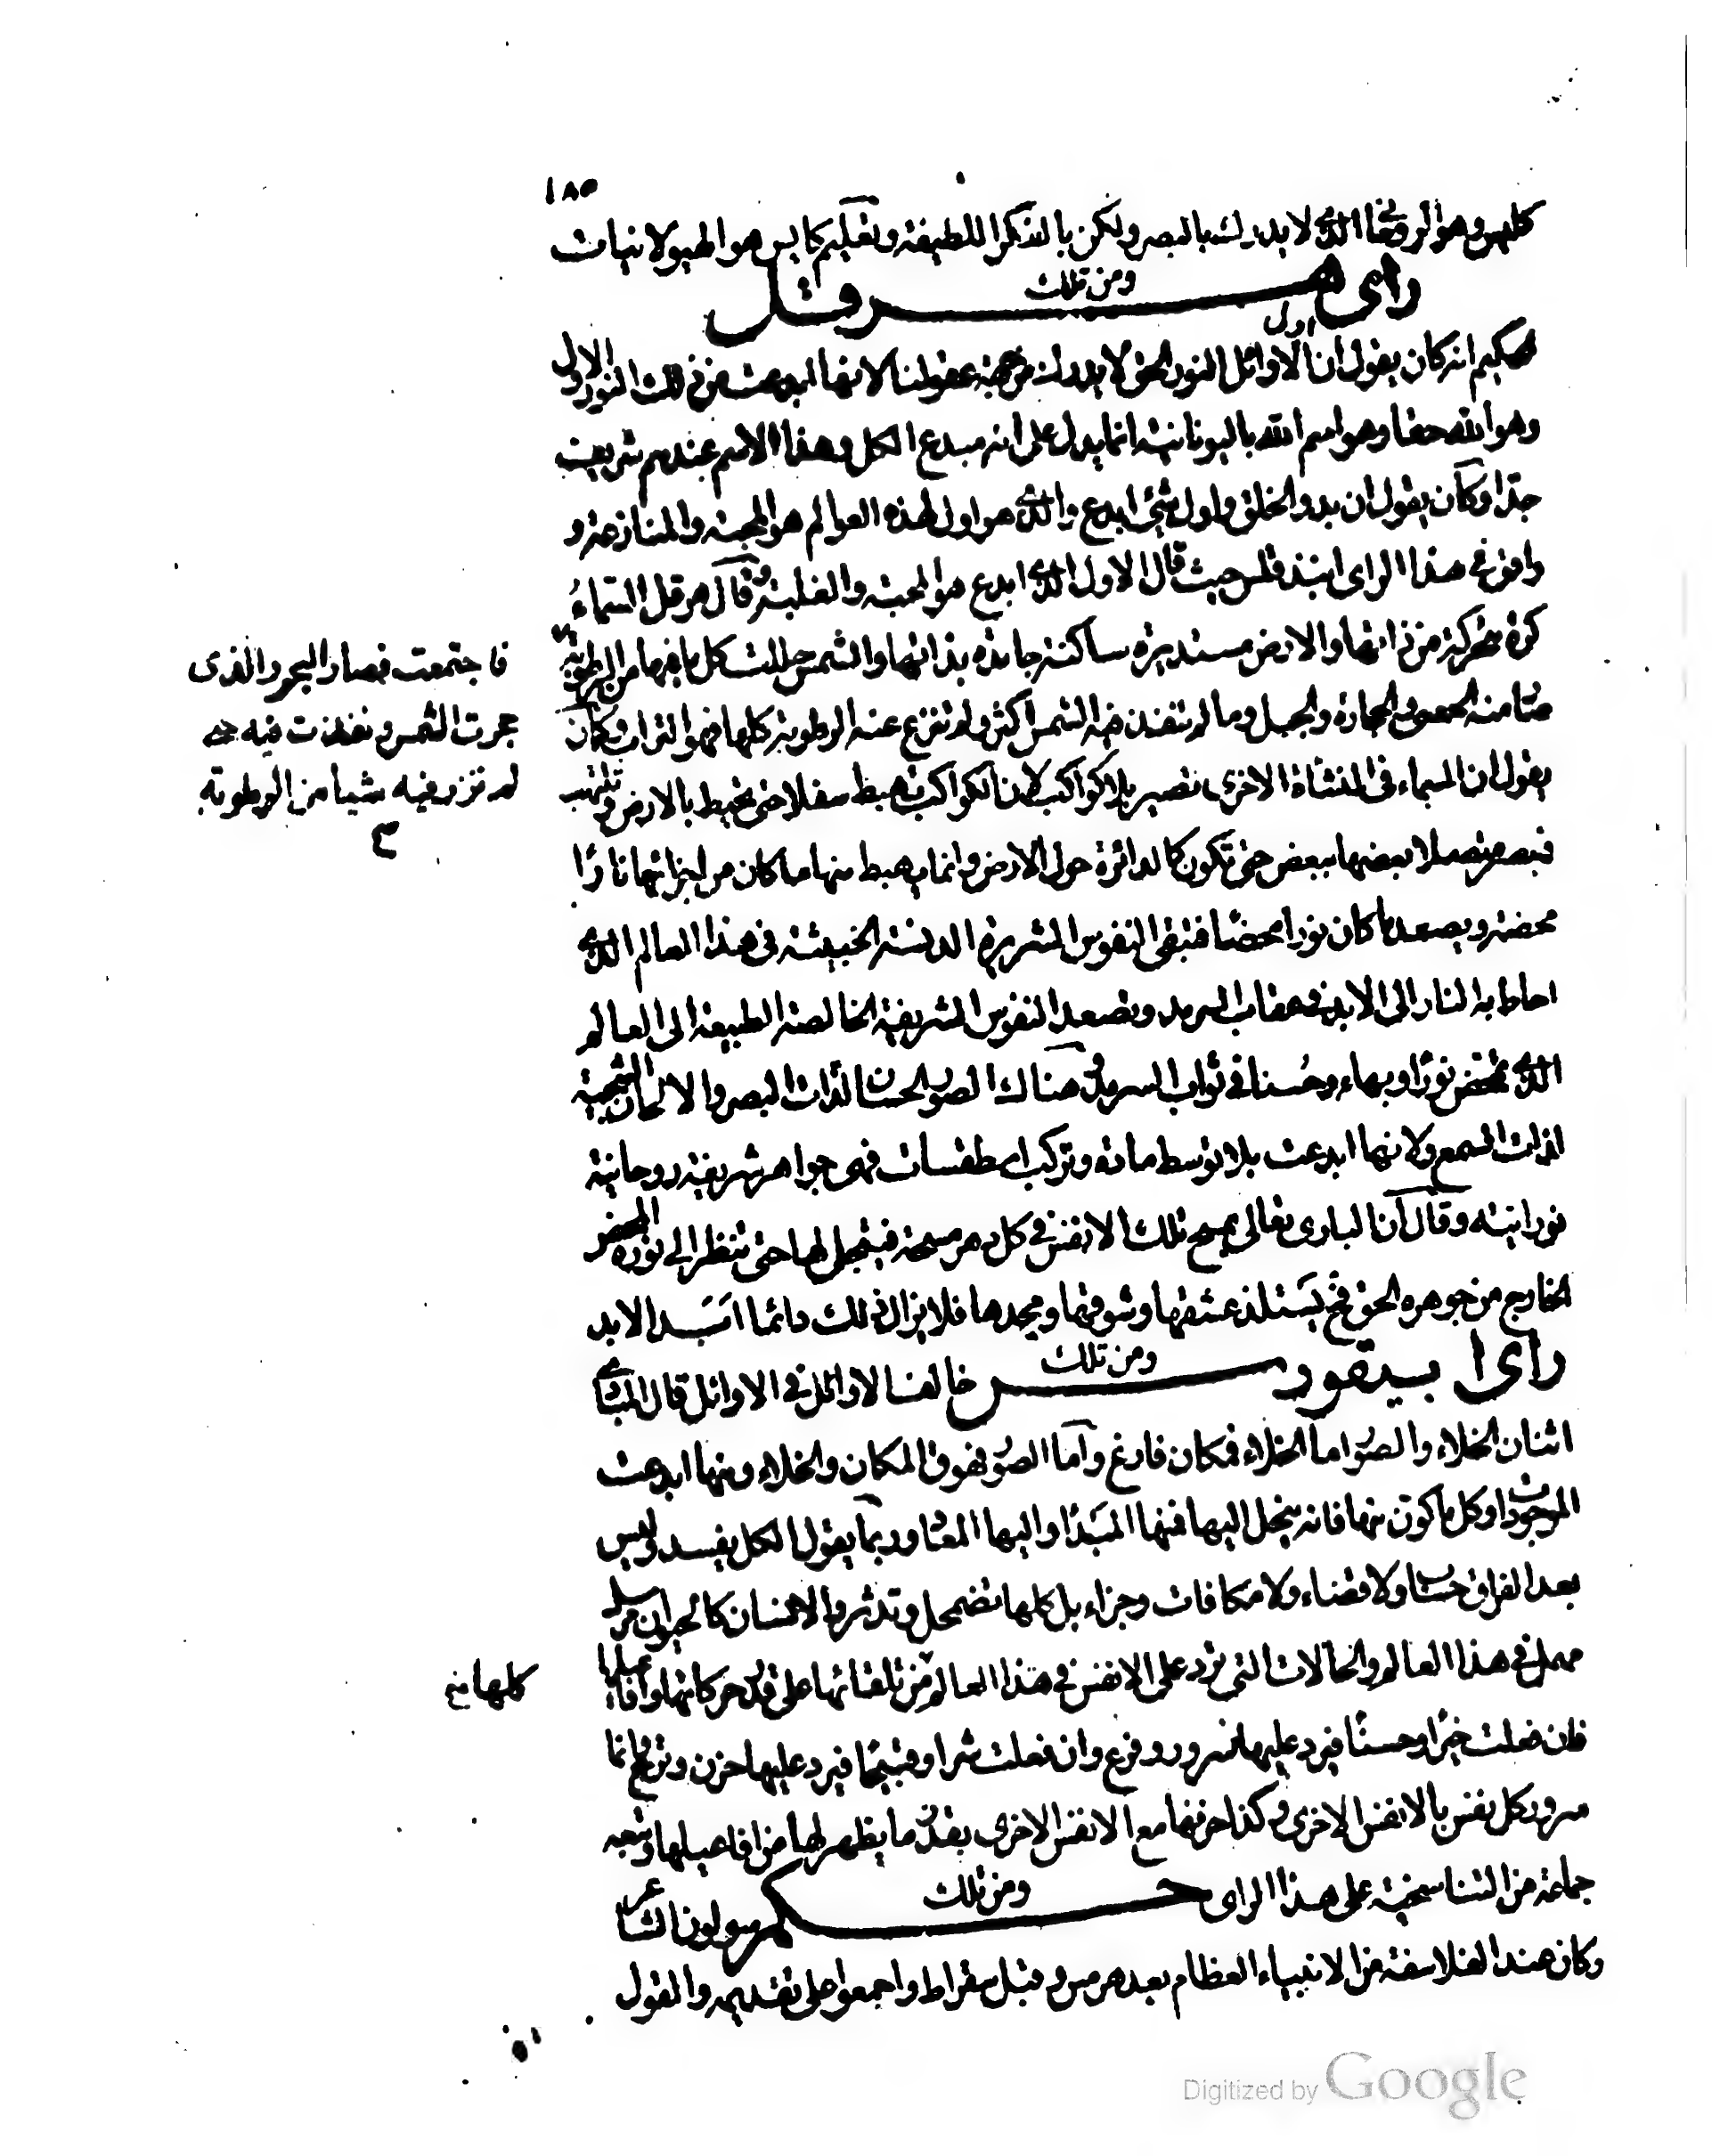 ١٨٥
كلهس وهو الروحانى الذى لا يدرك بالبصر ولكن بالفكر اللطيفة وتفكيركاليس هو الهيولانيات
ومن تلك
راى هرقل
الحكيم انه كان يقول ان اول الاوائل النور الحق لا يدرك من جهة عقولنا لانها ابدعت من ذلك النور الاول
وهو الله حقا وهو اسم الله باليونانية انما يدل على انه مبدع الكل وهذا الاسم عندهم شريف
جدا وكان يقول ان بدو الخلق واول شئ ابدع والذى هو اول لهذه العوالم هو المحبة والمنازعة و
وافق فى هذا الراى انبذقلس حيث قال الاول الذى ابدع هو المحبة والغلبة وقال هرقل السماء
كرة متحركة من ذاتها والارض مستديرة ساكنة جامدة بذاتها والشمس حللت كل ما فيها من الرطوبة
فاجتمعت فصار البحر والذى
حجرت الشمس ونفذت فيه حتى
لم تزر فيه شيا من الرطوبة
صار منه الحصى والحجارة والجبل وما لم تنفذ فيه الشمس اكثر ولم تنزع عنه الرطوبة كلها فهو التراب وكان
يقول ان السماء فى النشاة الاخرى تصير بلا كواكب لان الكواكب تهبط سفلا حتى تحيط بالارض وتلتهب
فتصير متصلا بعضها ببعض حتى تكون كالدائرة حول الارض وانما يهبط منها ما كان من اجزائها نارًا
محضة ويصعد ما كان نورا محضًا فتبقى النفوس الشريرة الدنسة الخبيثة فى هذا العالم الذى
احاط به النار الى الابد فى عقاب السرمد وتصعد النفوس الشريفة الخالصة الطيبة الى العالم
الذى تمحض نورًا وبهاء وحُسنا فى ثواب السرمد وهناك الصور الحسان لذات البصر والالحان الشجية
لذات السمع ولانها ابدعت بلا توسط مادة وتركب اسطقسات فهى جواهر شريفة روحانية
نورانية وقال ان البارى تعالى يمسح تلك الانفس فى كل دهر مسحة فيتجلى لها حتى تنظر الى نوره المحض
الخارج من جوهره الحق فح يستلذ عشقها وشوقها ومجدها فلا يزال ذلك دائما ابد الابد
ومن تلك
راى ابيقورس خالف الاوائل فى الاوائل قال المبادى
اثنان الخلاء والصور اما الخلاء فمكان فارغ واما الصور فهو فوق المكان والخلاء ومنها ابدعت
الموجودات وكل ما كون منها فانه ينحل اليها فمنها المبدا واليها المعاد وربما يقول الكل يفسد وليس
بعد الفراق حساب ولا قضاء ولا مكافات وجزاء بل كلها تضمحل وتدثر والانسان كالحيوان مرسل
مهمل فى هذا العالم والحالات التى ترد على الانفس فى هذا العالم من تلقائها على قدر حركاتها وافاعيلها
كلها نخ
فان فعلت خيرًا وحسنًا فيرد عليها سرور وفرح وان فعلت شرا وقبيحًا فيرد عليها حزن وترح وانما
سرور كل نفس بالانفس الاخرى وكذا حزنها مع الانفس الاخرى بقدر ما يظهر لها من افاعيلها وتبعه
ومن تلك
جماعة من التناسخية على هذا الراى حكم سولون الشاعر
وكان عند الفلاسفة من الانبياء العظام بعد هرمس وقبل سقراط واجمعوا على تقديمه والقول
Digitized by Google